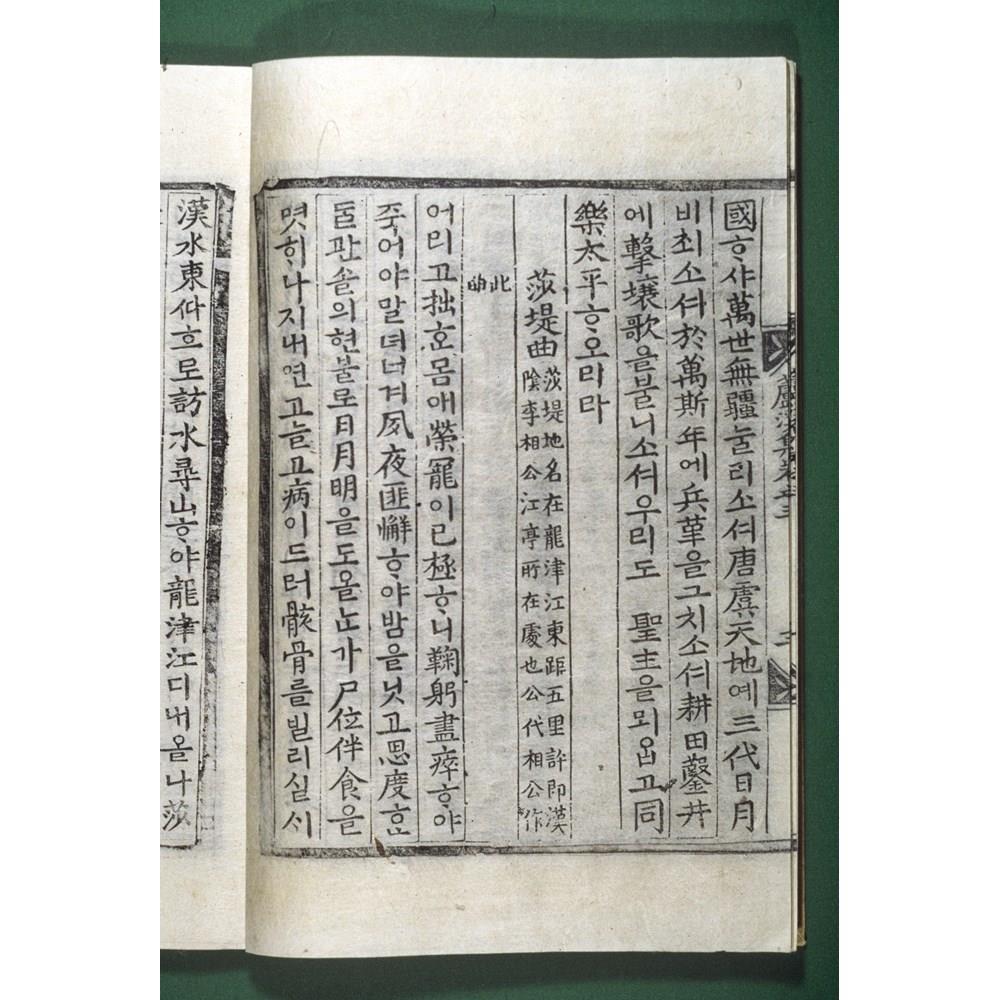 國ᄒᆞ샤萬世無疆눌리소셔唐虞天地예三代日月
비최소셔於萬斯年에兵革을그치소셔耕田鑿井
에擊壤歌을불니소셔우리도 聖主을뫼ᄋᆞᆸ고同
樂太平ᄒᆞ오리라
莎堤曲 莎堤地名在龍津江東距五里許即漢
陰李相公江亭所在處也公代相公作
此曲
어리고拙ᄒᆞᆫ몸애榮寵이已極ᄒᆞ니鞠躬盡瘁ᄒᆞ야
죽어야말녀너겨夙夜匪懈ᄒᆞ야밤을닛고思度ᄒᆞᆫ
ᄃᆞᆯ관솔의현불로日月明을도올ᄂᆞᆫ가尸位伴食을
몃ᄒᆡ나지내연고늘고病이드러骸骨를빌리실ᄉᆡ
漢水東ᄯᅡ흐로訪水尋山ᄒᆞ야龍津江디내올나莎
蘆溪集卷之三